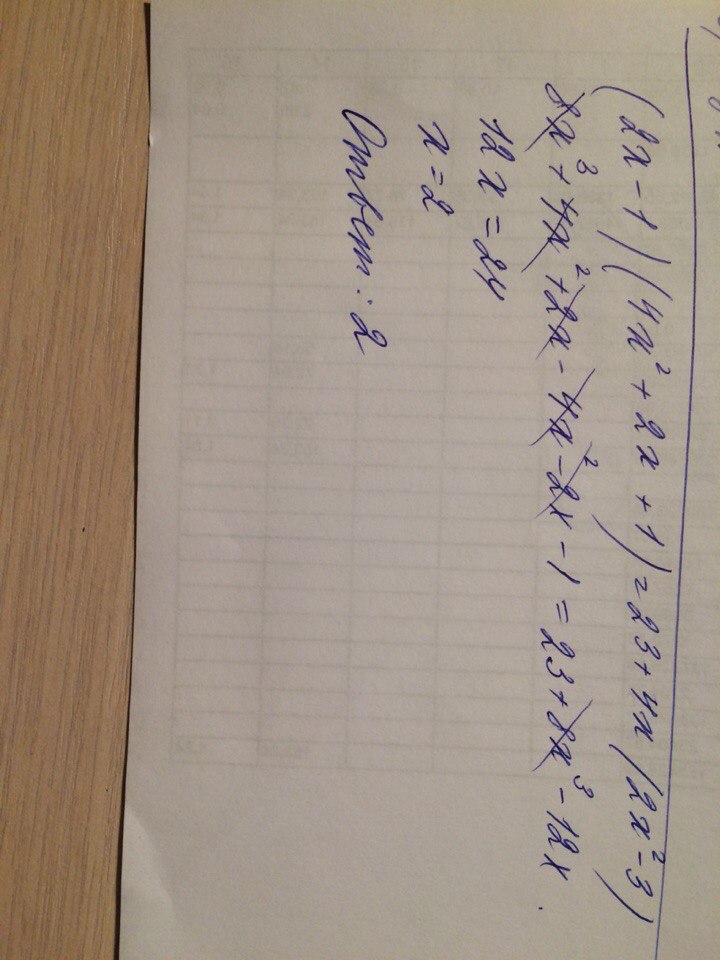 (2x-1)(4x²+2x+1)=23+4x(2x²-3)
8x³+4x²+2x-4x²-2x-1=23+8x³-12x.
12x=24
x=2
Ответ: 2